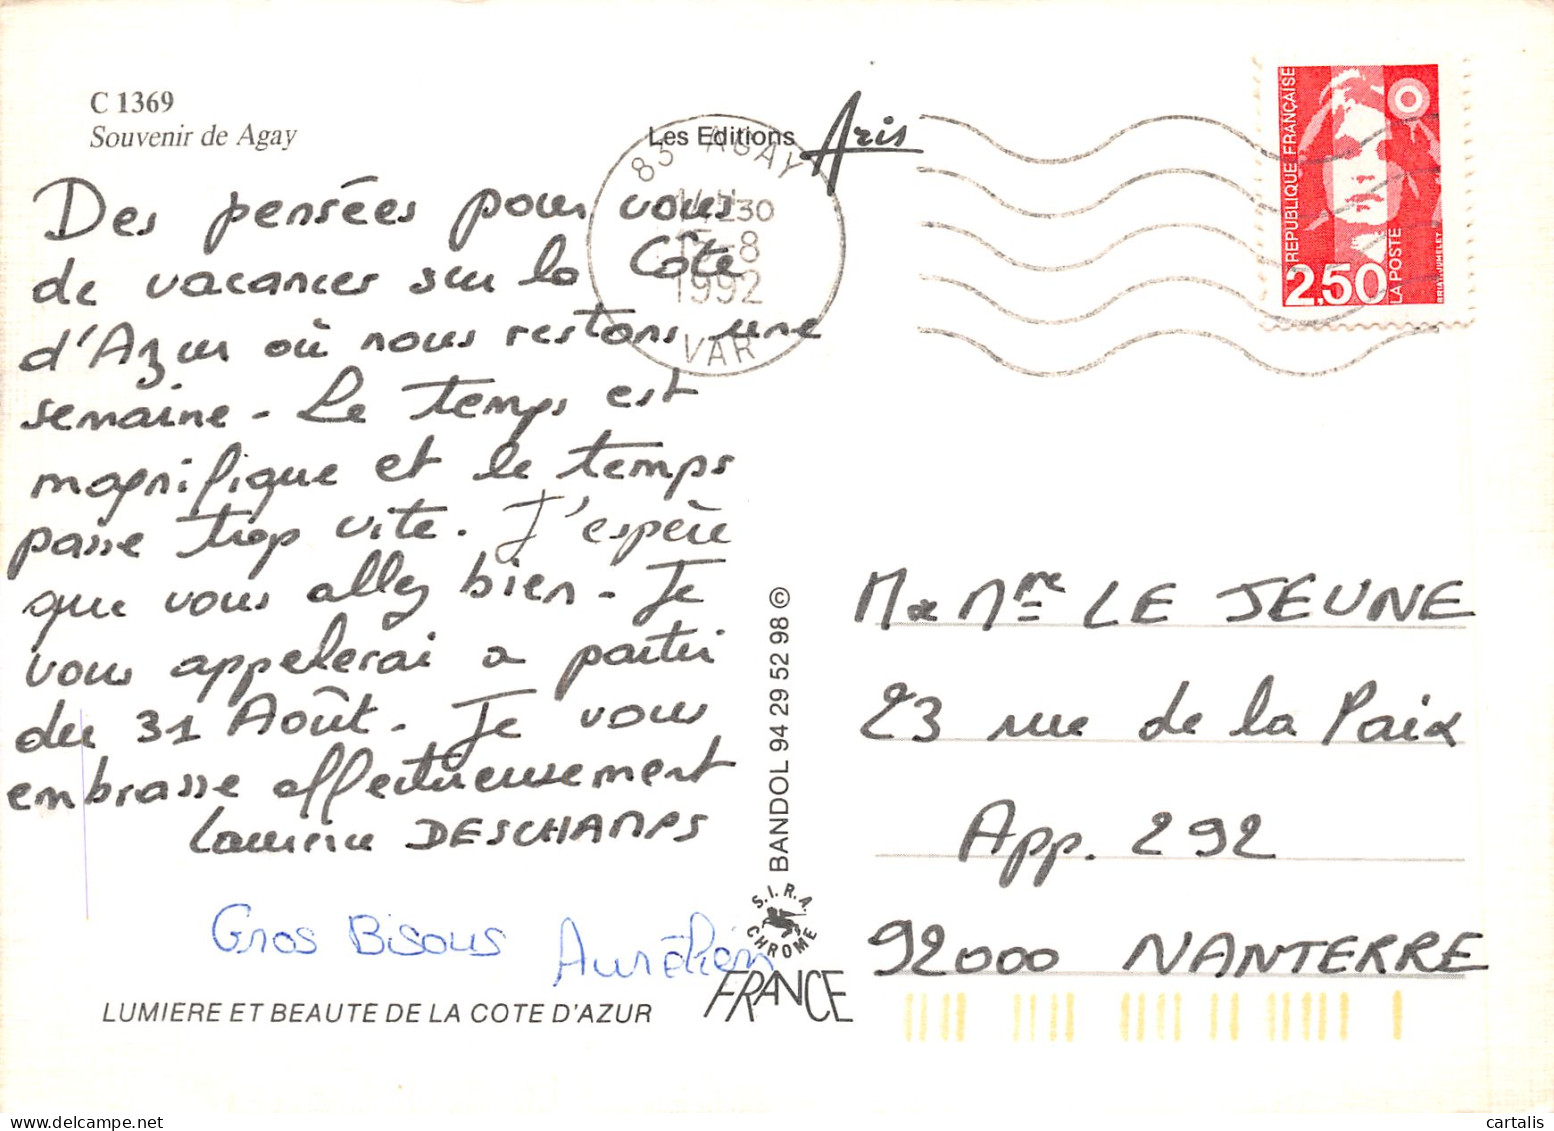 C 1369
Souvenir de Agay
Les Editions Aris
83 AGAY
30
-8
1992
VAR
REPUBLIQUE FRANÇAISE
2,50
LA POSTE
BRIAT JUMELET
Des pensées pour vous
de vacances sur la Côte
d'Azur où nous restons une
semaine - Le temps est
magnifique et le temps
passe trop vite. J'espère
que vous allez bien - Je
vous appelerai a partir
du 31 Août - Je vous
embrasse affectueusement
DESCHAMPS
Gros Bisous Aurélien
LUMIERE ET BEAUTE DE LA COTE D'AZUR
BANDOL 94 29 52 98 ©
S.I.R.A.
CHROME
FRANCE
M & Mme LE JEUNE
23 rue de la Paix
App. 292
92000 NANTERRE
cartalis